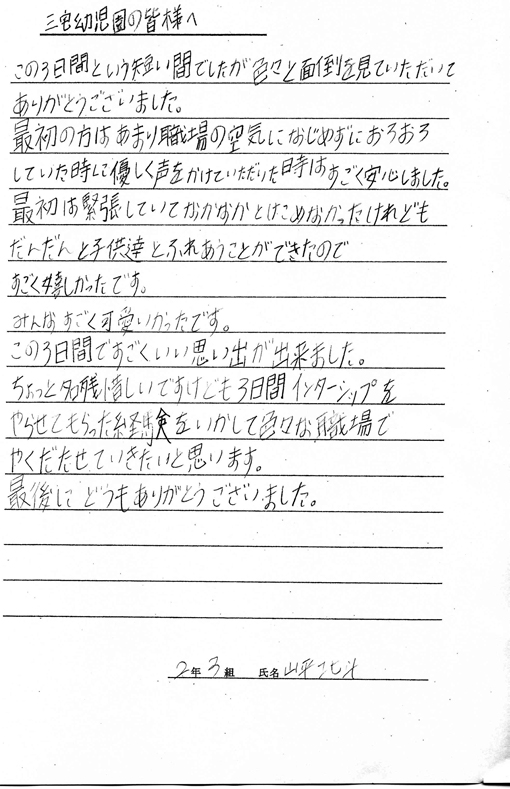 三宮幼児園の皆様へ
この3日間という短い間でしたが色々と面倒を見ていただいて
ありがとうございました。
最初の方はあまり職場の空気になじめずにおろおろ
していた時に優しく声をかけていただいた時はすごく安心しました。
最初は緊張していてなかなかとけこめなかったけれども
だんだんと子供達とふれあうことができたので
すごく嬉しかったです。
みんなすごく可愛いかったです。
この3日間ですごくいい思い出が出来ました。
ちょっと名残惜しいですけども3日間インターシップを
やらせてもらった経験をいかして色々な職場で
やくだたせていきたいと思います。
最後に どうもありがとうございました。
2年3組 氏名 山平 北斗